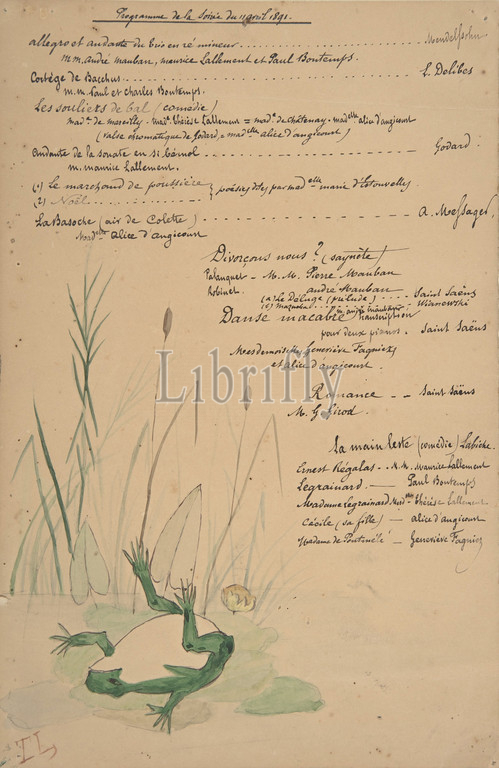 Programme de la Soirée du 11 avril 1891.
allegro et andante du trio en ré mineur Mendelsohn
M.M. André Mauban, Maurice Lallement et Paul Bontemps.
Cortège de Bacchus L. Delibes
M.M. Paul et Charles Bontemps.
Les souliers de bal (comédie)
Mad.elle de Marcilly - Mad.elle Thérèse Lallement = Mad.e de Châtenay - Mad.elle Alice d'angicourt
(valse chromatique de Godard = Mad.elle alice d'angicourt)
Andante de la sonate en si bémol Godard.
M. Maurice Lallement.
(1) Le marchand de poussière
(2) Noël
poésies dites par Mad.elle Marie d'Estouvelles
La Basoche (air de Colette) A. Messager
Mad.elle Alice d'angicourt
Divorçons nous ? (saynète)
Palanquet - M.M. Pierre Mauban
Robinet. André Mauban
(a) Le Déluge (prélude) Saint Saëns
(b) Mazurka Wianowski
M. André Mauban
Danse macabre transcription
pour deux pianos. Saint Saëns
Mesdemoiselles Geneviève Fagniez
et alice d'angicourt.
Romance Saint Saëns
M. G. Girod.
La main leste (comédie) Labiche.
Ernest Régalas M.M. Maurice Lallement
Legrainard Paul Bontemps
Madame Legrainard Mad.elles Thérèse Lallement
Cécile (sa fille) - alice d'angicourt
Madame de Geneviève Fagniez
Librifly
TL